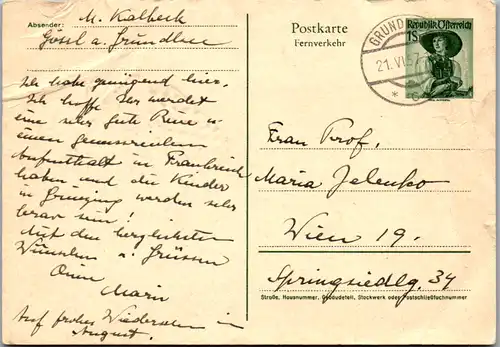 Absender: M. Kalbeck
Gössl a. Grundlsee
Postkarte
Fernverkehr
GRUND
21.VI.57
Republik Österreich
1S
Ich habe genügend hier.
Ich hoffe Ihr werdet
eine sehr gute Reise u.
einen genussreichen
Aufenthalt in Frankreich
haben und die Kinder
in Grinzing werden sehr
brav sein!
Mit den herzlichsten
Wünschen u. Grüssen
Deine
Marie
Auf frohes Wiedersehen im
August.
Frau Prof.
Maria Jelenko
Wien 19.
Springsiedlg. 34
Straße, Hausnummer, Gebäudeteil, Stockwerk oder Postschließfachnummer